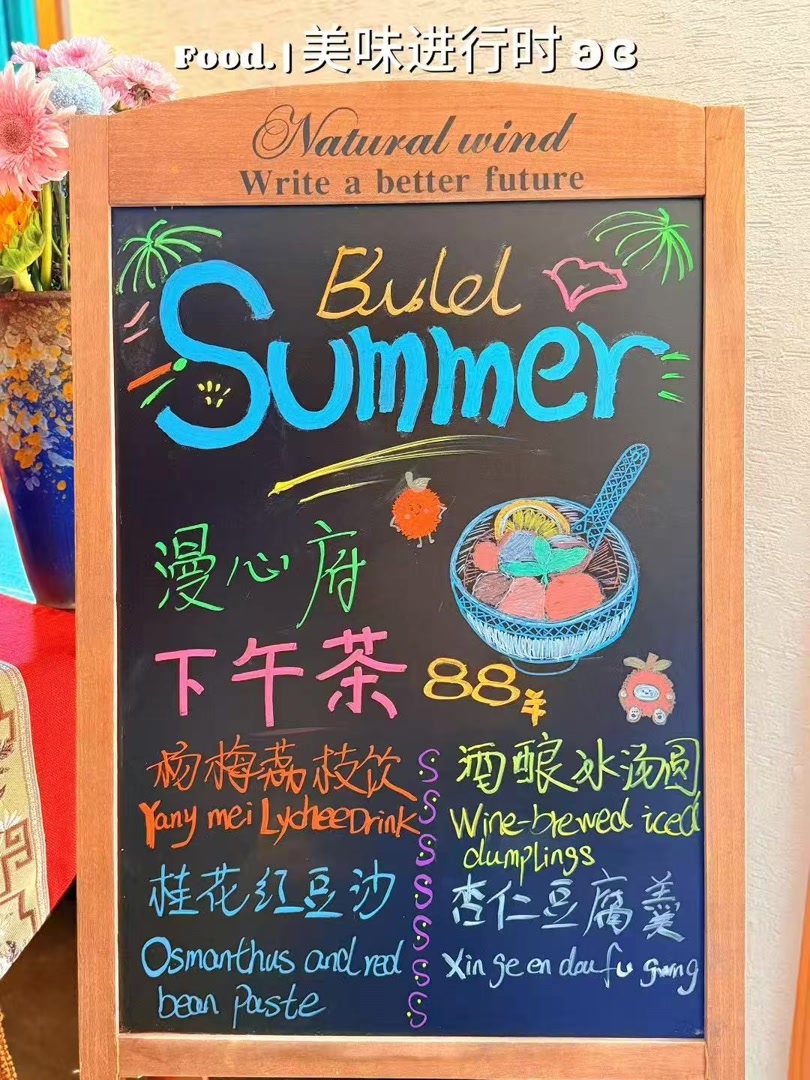 Food. | 美味进行时
Natural wind
Write a better future
Summer
漫心府
下午茶 88
杨梅荔枝饮
Yang mei Lychee Drink
桂花红豆沙
Osmanthus and red
bean Paste
酒酿冰汤圆
Wine-brewed iced
dumplings
杏仁豆腐羹